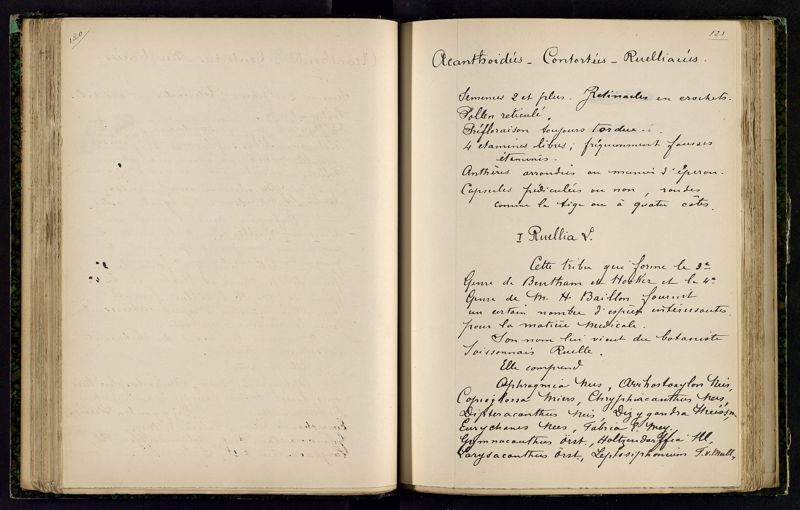 120
121
Acanthoidées - Contortées - Ruelliacées.
Semences 2 et plus. Rétinacles en crochets.
Pollen réticulé.
Préfloraison toujours tordue.
4 étamines libres; fréquemment fausses
étamines.
Anthères arrondies ou munies d'éperon.
Capsules pédiculées ou non, rondes
comme la tige ou à quatre côtes.
I Ruellia L.
Cette tribu qui forme le 3e
Genre de Bentham et Hooker et le 4e
Genre de M. H. Baillon fournit
un certain nombre d'espèces intéressantes
pour la matière médicale.
Son nom lui vient du botaniste
Soissonnais Ruelle.
Elle comprend
Aphragmia Nees, Arrhostoxylon Nees,
Copioglossa Miers, Chryphiacanthus Nees,
Dipteracanthus Nees, Dizygandra
Eurychanes Nees, Fabria E. Mey.
Gymnacanthus Orst, Holtzendorffia Kl.
Larysacanthus Orst., Leptosiphonium F.v.Mull.,